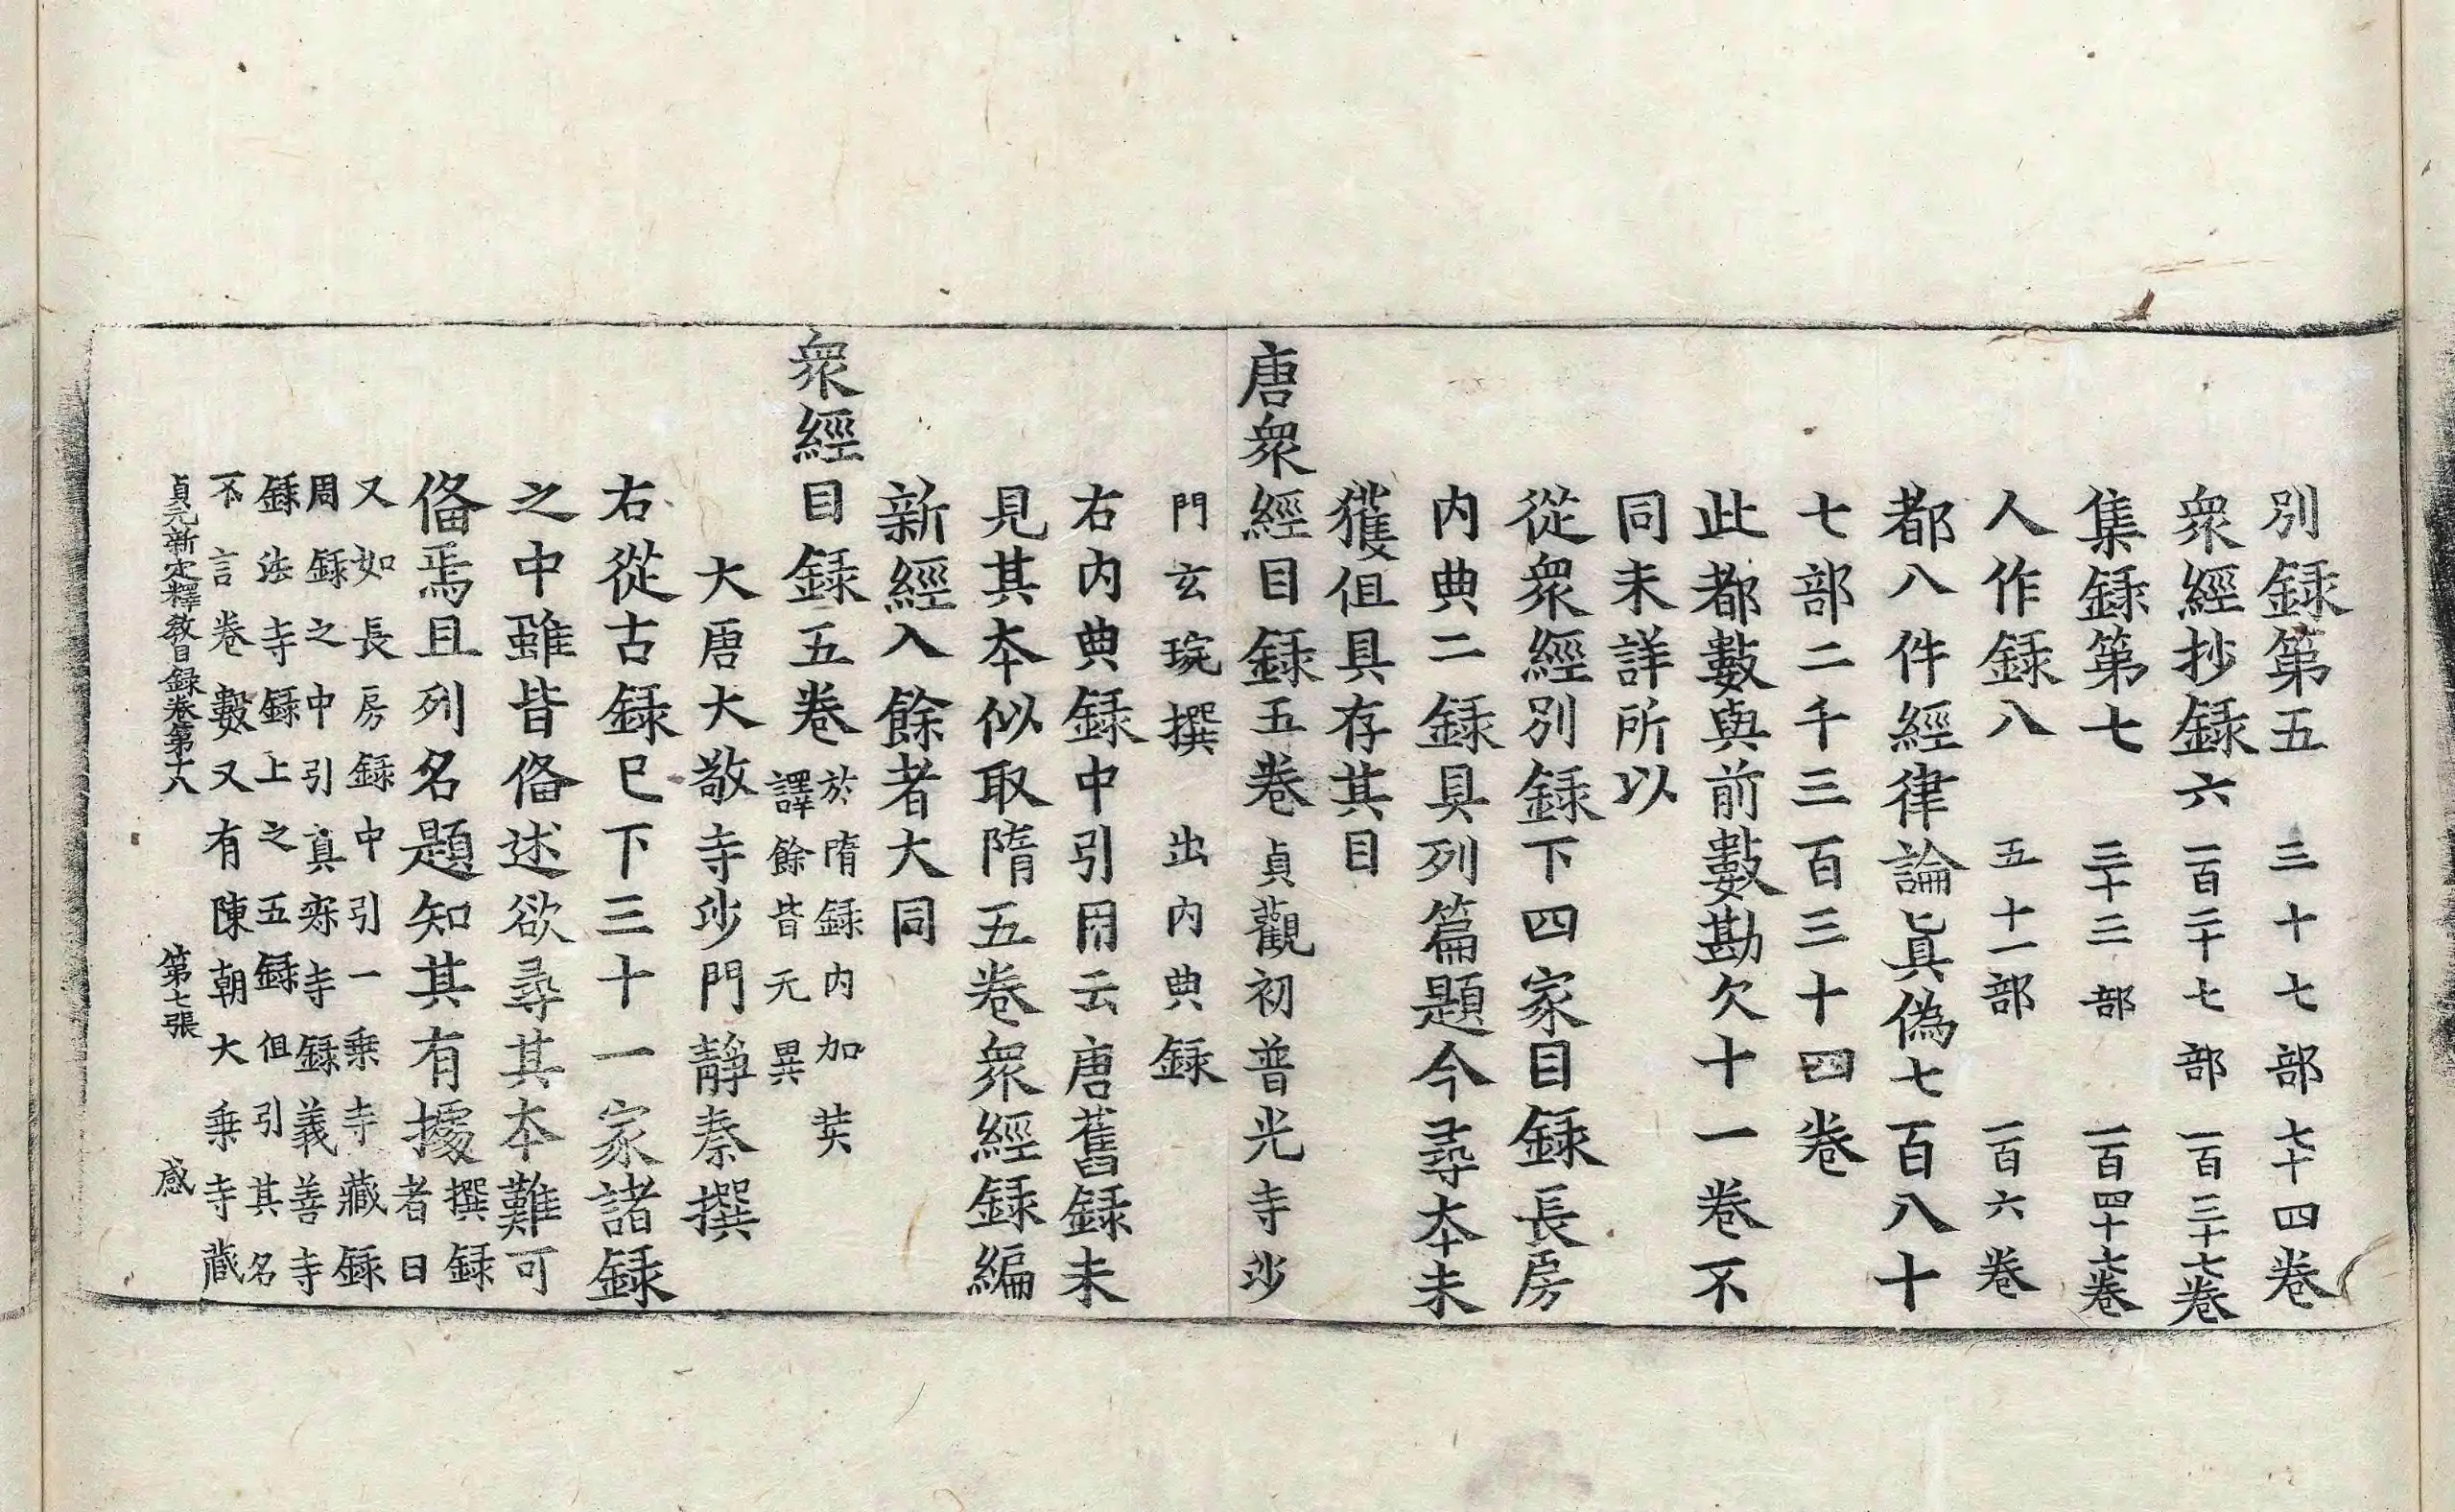 別録第五 三十七部 七十四卷
衆經抄録六 一百二十七部 一百三十七卷
集録第七 三十三部 一百四十七卷
人作録八 五十一部 一百六卷
都八件經律論眞偽七百八十
七部二千三百三十四卷
此都數與前數勘欠十一卷不
同未詳所以
從衆經別録下四家目録長房
内典二録具列篇題今尋本未
獲但具存其目
唐衆經目録五卷 貞觀初普光寺沙
門玄琬撰 出内典録
右内典録中引用云唐舊録未
見其本似取隋五卷衆經録編
新經入餘者大同
衆經目録五卷 於隋録内加奘
譯餘皆无異
大唐大敬寺沙門靜泰撰
右從古録已下三十一家諸録
之中雖皆俻述欲尋其本難可
俻焉且列名題知其有據 撰録
者曰
又如長房録中引一乗寺藏録
周録之中引真寂寺録義善寺
録法寺録上之五録但引其名
不言卷數又有陳朝大乗寺藏
貞元新定釋教目録卷第十八 第七張 感